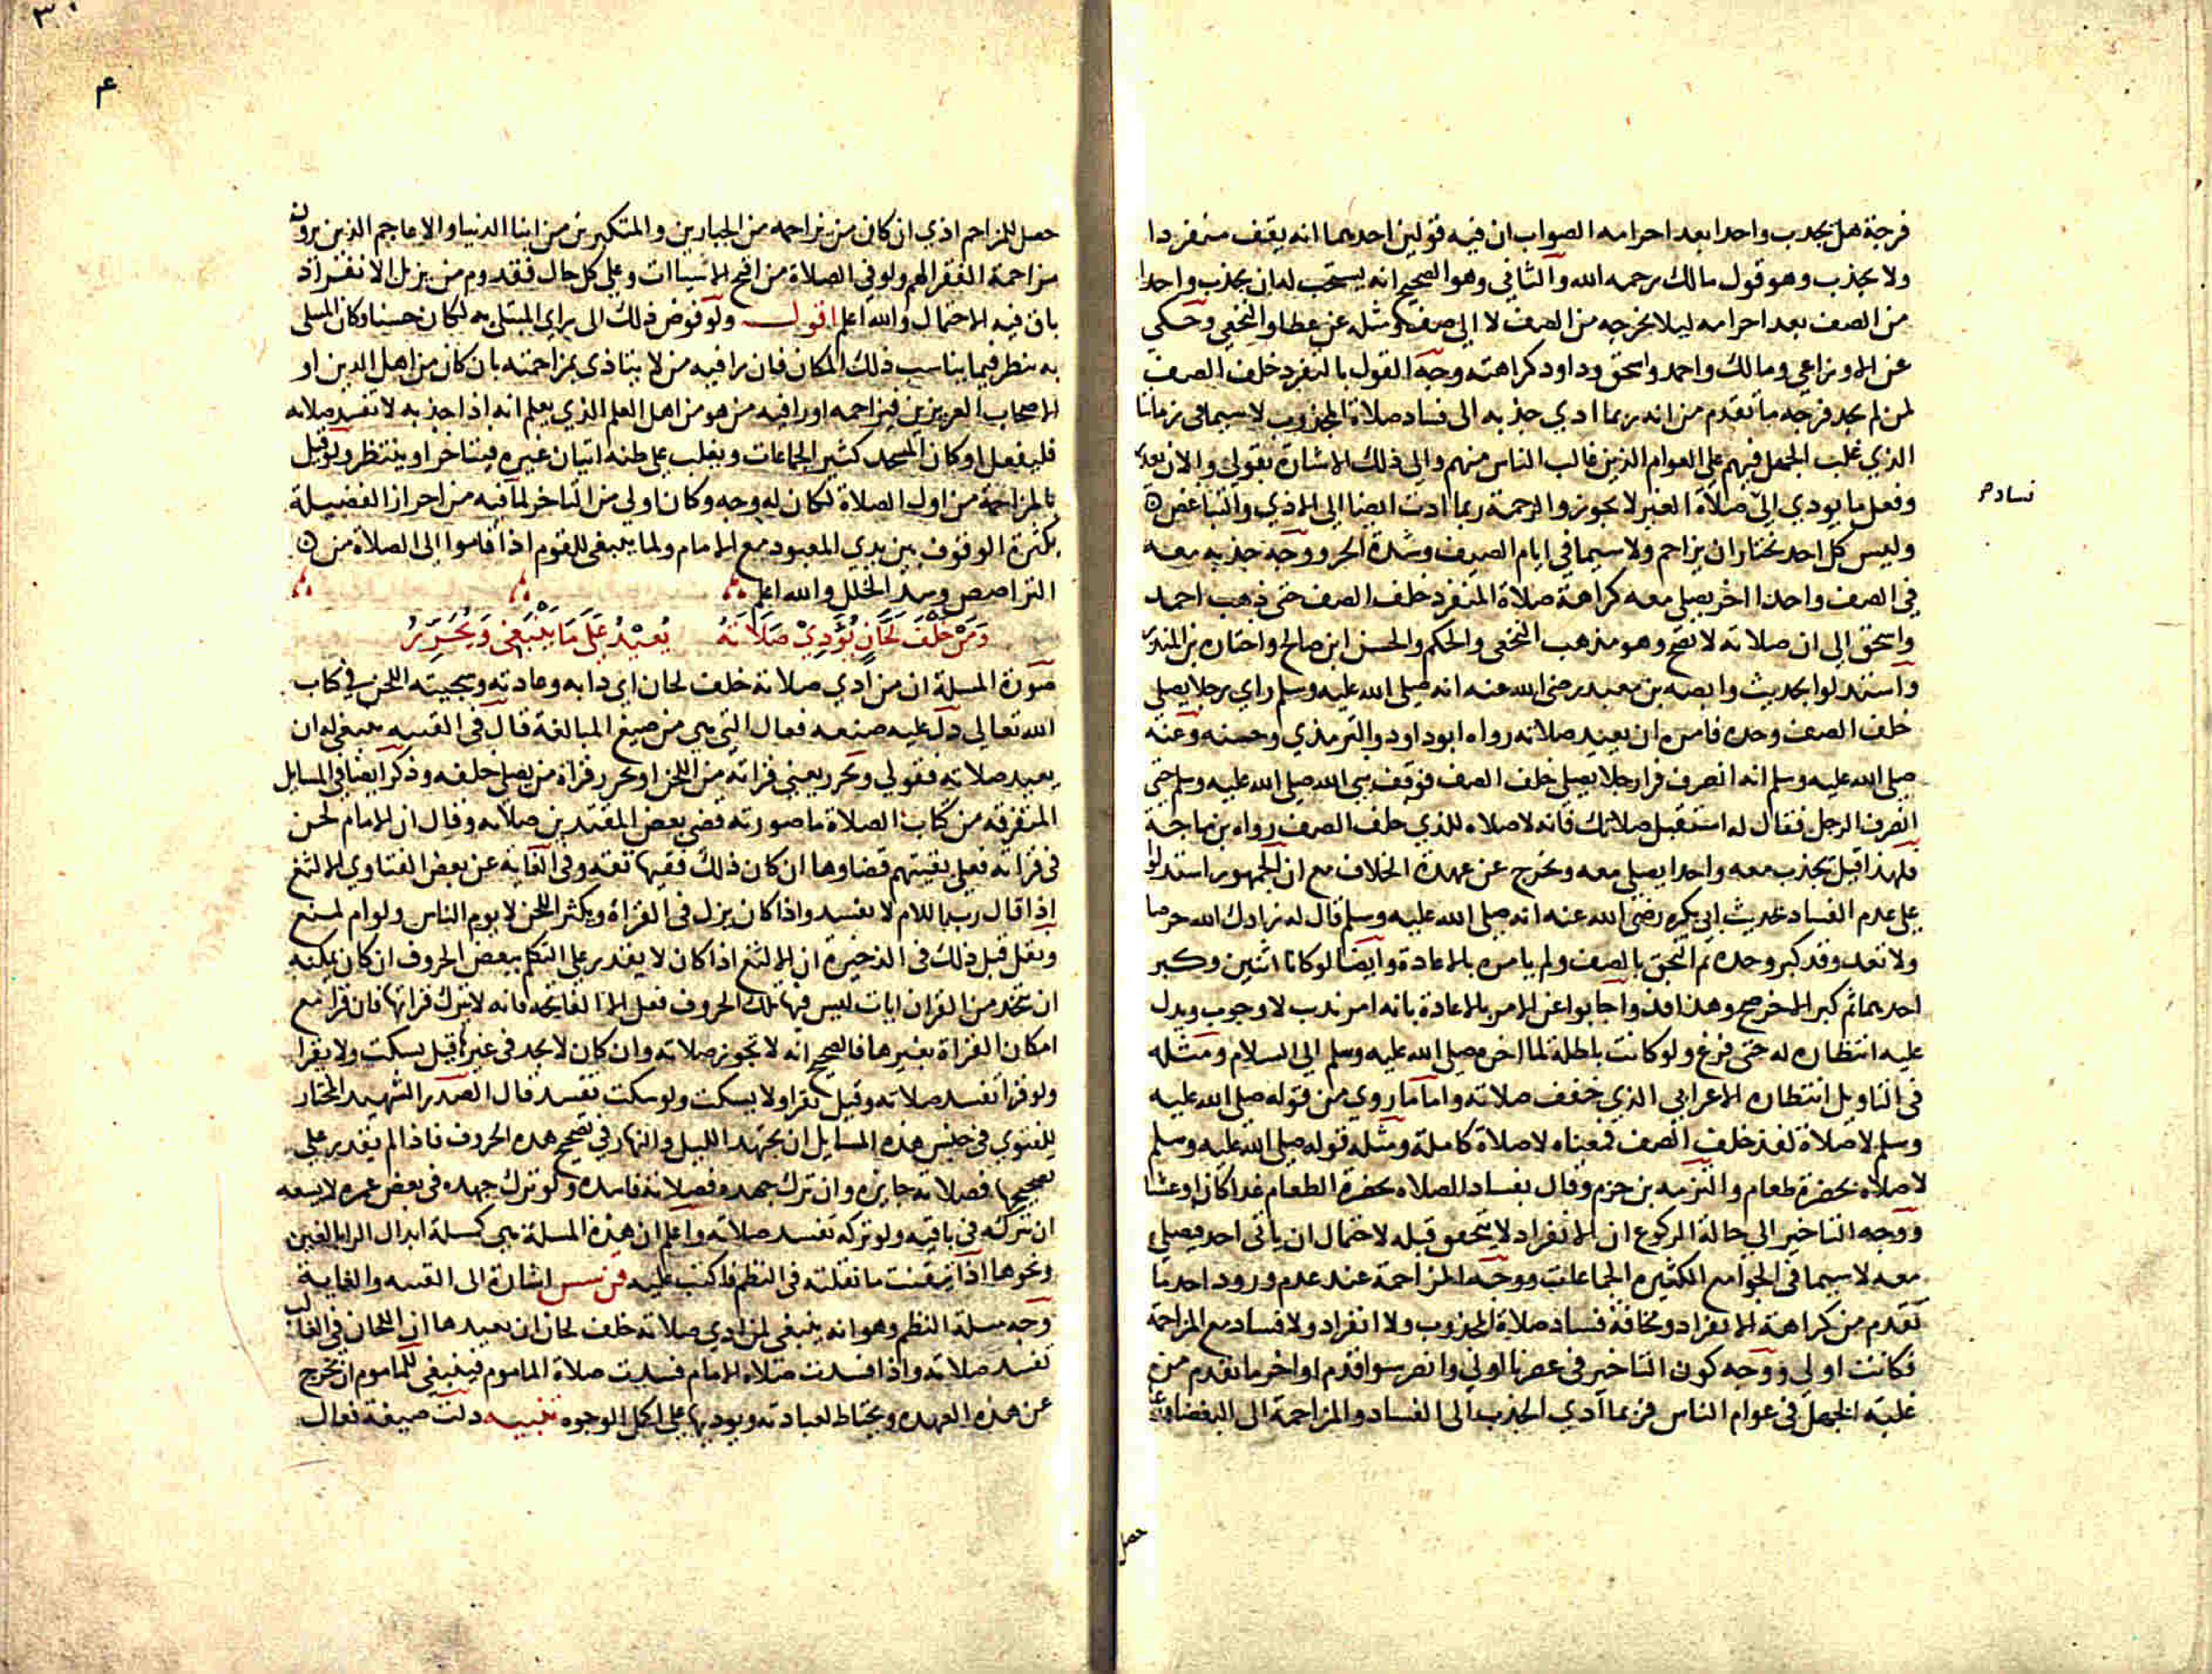 فرجة هل يجذب واحدا بعد احرامه الصواب ان فيه قولين احدهما انه يقف منفردا
ولا يجذب وهو قول مالك رحمه الله والثاني وهو الصحيح انه يستحب له ان يجذب واحدا
من الصف بعد احرامه ليلا يخرجه من الصف لا الى صف ومثله عن عطا والنخعي وحكى
عن الاوزاعي ومالك واحمد واسحق وداود كراهته وجه القول بالتفرد خلف الصف
لمن لم يجد فرجة ما تقدم من انه ربما ادي جذبه الى فساد صلاة المجذوب لا سيما في زماننا
الذي غلب الجهل فيهم علي العوام الذين غالب الناس منهم والي ذلك الاشارة بقولي والان
وفعل ما يودي الى صلاة الغير لا يجوز والزحمة ربما ادت ايضا الى الاذي والتباغض
فساد
وليس كل احد يختار ان يزاحم ولا سيما في ايام الصيف وشدة الحر ووجه جذبه معه
في الصف واحدا اخر يصلي معه كراهة صلاة المنفرد خلف الصف حتى ذهب احمد
واسحق الى ان صلاته لا تصح وهو مذهب النخعي والحكم والحسن ابن صالح واختاره بن المنذر
واستدلوا بحديث وابصه بن معبد رضي الله عنه انه صلي الله عليه وسلم راي رجلا يصلي
خلف الصف وحده فامره ان يعيد صلاته رواه ابو داود والترمذي وحسنه وعنه
صلي الله عليه وسلم انه انصرف فرا رجلا يصلي خلف الصف فوقف نبي الله صلي الله عليه وسلم حتى
انصرف الرجل فقال له استقبل صلاتك فانه لا صلاه للذي خلف الصف رواه بن ماجة
فلهذا قيل يجذب معه واحدا يصلي معه ويخرج عن عهدة الخلاف مع ان الجمهور استدلوا
على عدم الفساد بحديث ابي بكره رضي الله عنه انه صلي الله عليه وسلم قال له زادك الله حرصا
ولا تعد وقد كبر وحده ثم التحق بالصف ولم يامره بالاعادة وايضا لو كانا اثنين وكبر
احدهما ثم كبر الاخر صح وهذا فذ واجابوا عن الامر بالاعادة بانه امر ندب لا وجوب ويدل
عليه انتظاره له حتى فرغ ولو كانت باطلة لما اخره صلي الله عليه وسلم الي السلام ومثله
في التاويل انتظاره الاعرابي الذي خفف صلاته واما ما روي من قوله صلي الله عليه
وسلم لا صلاة لفذ خلف الصف فمعناه لا صلاة كاملة ومثله قوله صلي الله عليه وسلم
لا صلاه بحضرة طعام والتزمه بن حزم وقال بفساد الصلاه بحضرة الطعام غدا كان او عشا
ووجه التاخير الي حالة الركوع ان الانفراد لا يتحقق قبله لاحتمال ان ياتي احد فيصلي
معه لا سيما في الجوامع الكثيره الجماعات ووجه المزاحمة عند عدم ورود احد ما
تقدم من كراهة الانفراد ومخافة فساد صلاة المجذوب ولا انفراد ولا فساد مع المزاحمة
فكانت اولي ووجه كون التاخير في عصرنا اولي وانصر سوا قدم او اخر ما تقدم من
غلبة الجهل في عوام الناس فربما ادي الجذب الى الفساد والمزاحمة الى البغضا
حصل
٣٠
حصل للمزاحم اذي ان كان من يزاحمه من الجبارين والمتكبرين من ابنا الدنيا والاعاجم الذين يرون
مزاحمة الفقرا لهم ولو في الصلاة من اقبح الاشياات وعلى كل حال فقدوم من يزيل الانفراد
باق فيه الاحتمال والله اعلم اقول ولو فوض ذلك الى راي المبتلى به لكان حسنا وكان المبتلى
به ينظر فيما يناسب ذلك المكان فان را فيه من لا يتاذي بمزاحمته بان كان من اهل الدين او
الاصحاب العزيزين فيزاحمه او را فيه من هو من اهل العلم الذي يعلم انه اذا جذبه لا تفسد صلاته
فليفعل او كان المسجد كثير الجماعات ويغلب على ظنه اتيان غيره فيتاخر او ينتظر ولو قيل
بالمزاحمة من اول الصلاة لكان له وجه وكان اولي من التاخر لما فيه من احراز الفضيلة
بكثرة الوقوف بين يدي المعبود مع الامام ولما ينبغي للقوم اذا قاموا الى الصلاة من
التراصص وسد الخلل والله اعلم
وَمَنْ خَلْفَ لَحَّانٍ يُؤَدِيْ صَلَاتَهُ يُعِيْدُ عَلَى مَا يَنْبَغِي وَيُحَرِّرُ
صورة المسلة ان من ادي صلاته خلف لحان اي دابه وعادته وسجيته اللحن في كتاب
الله تعالى دل عليه صنعه فعال التي هي من صيغ المبالغة قال في القنيه ينبغي له ان
يعيد صلاته فقولي ويحرر يعني قراته من اللحن او يحرر قراة من يصلي خلفه وذكر ايضا في المسايل
المتفرقه من كتاب الصلاة ما صورته قضى بعض المقتدين صلاته وقال ان الامام لحن
في قراته فعلي بقيتهم قضاوها ان كان ذلك فقيها ثقة وفي الغايه عن بعض الفتاوي الالثغ
اذا قال رب اللام لا تفسد واذا كان يزل في القراة ويكثر اللحن لا يوم الناس ولو ام لمنع
ونقل قبل ذلك في الذخيرة ان الالثغ اذا كان لا يقدر على التكلم ببعض الحروف ان كان يمكنه
ان يتخذ من القران ايات ليس فيها تلك الحروف فعل الا الفاتحه فانه لا يترك قراتها فان قرا مع
امكان القراة بغيرها فالصحيح انه لا تجوز صلاته وان كان لا يجد في غيرها قيل يسكت ولا يقرا
ولو قرا تفسد صلاته وقيل يقرا ولا يسكت ولو سكت تفسد قال الصدر الشهيد المختار
للفتوي في جنس هذه المسايل ان يجتهد الليل والنهار في تصحيح هذه الحروف فاذا لم يقدر على
تصحيحها فصلاته جايزه وان ترك جهده فصلاته فاسده ولو ترك جهده في بعض عمره لا يسعه
ان يتركه في باقيه ولو تركه تفسد صلاته واعلم ان هذه المسلة هي كمسلة ابدال الرا بالغين
ونحوها اذا تيقنت ما نقلته في النظم فاكتب عليه اشارة الى القنيه والغاية
وجه مسلة النظم وهو انه ينبغي لمن ادي صلاته خلف لحان ان يعيدها ان اللحان في الغالب
تفسد صلاته واذا فسدت صلاه الامام فسدت صلاة الماموم فينبغي للماموم ان يخرج
عن هذه العهده ويحتاط لعبادته ويوديها على اكمل الوجوه تنبيه دلت صيغة فعال